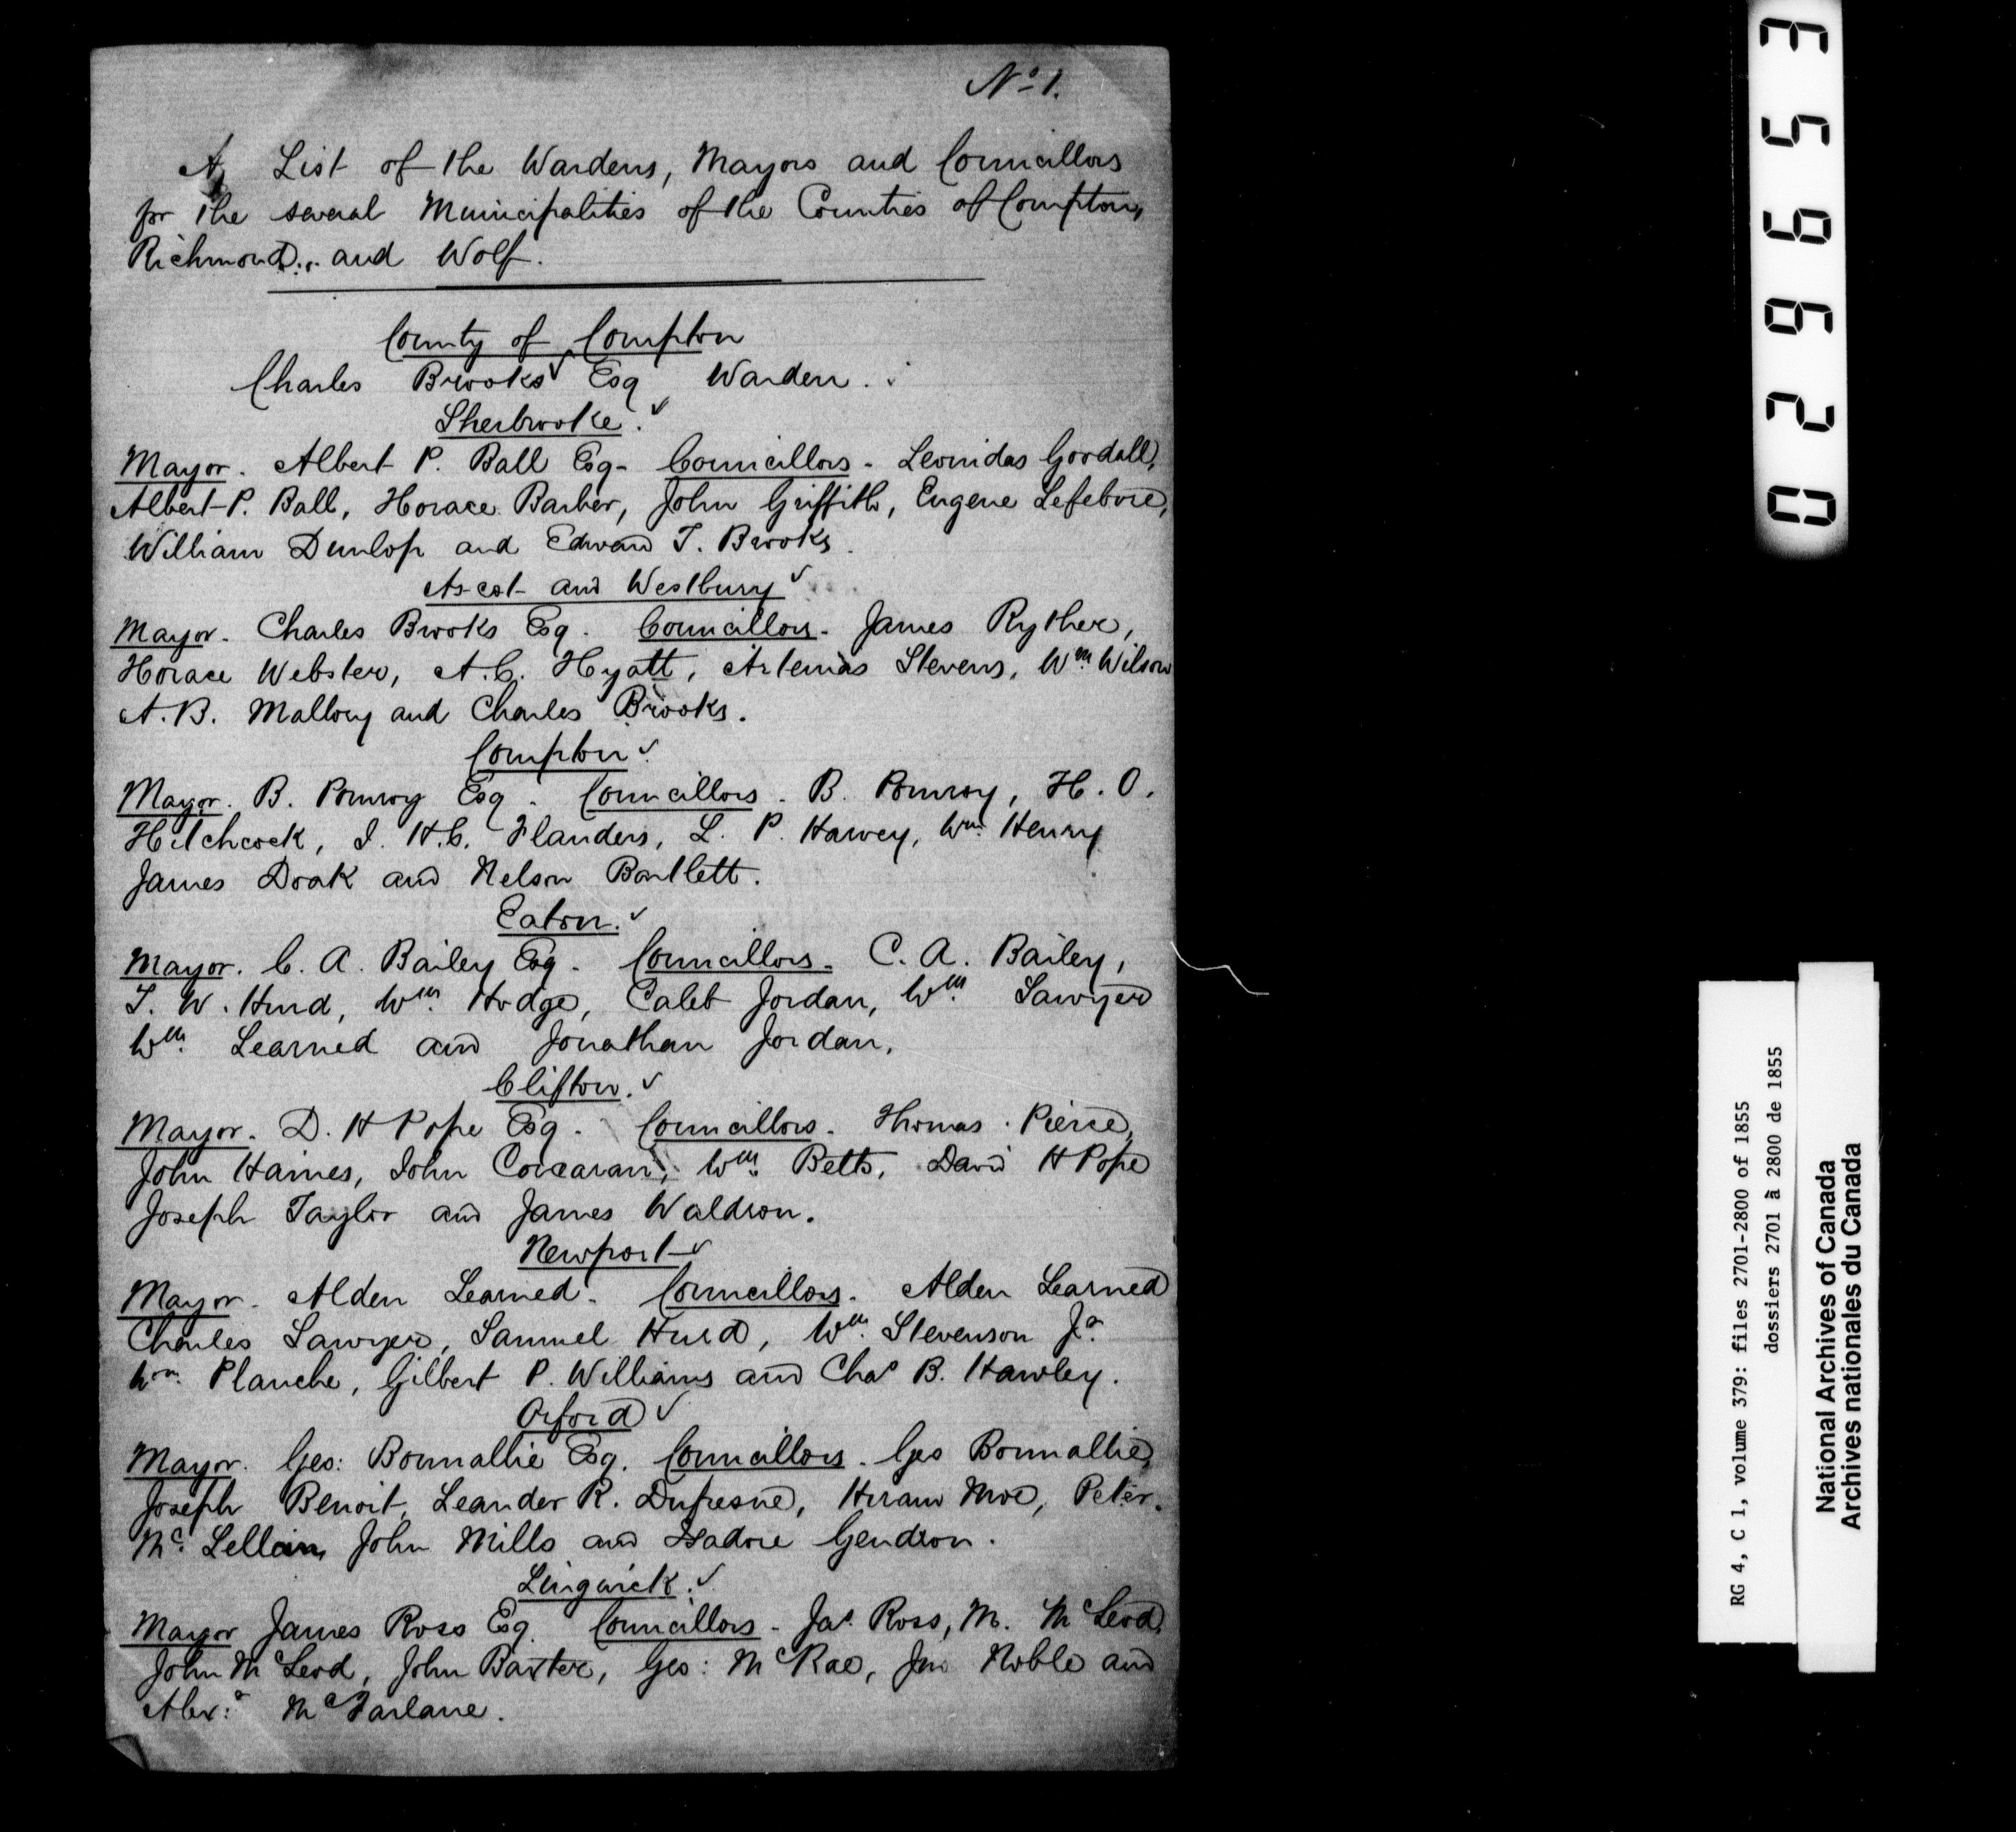 No 1.
A List of the Wardens, Mayors and Councillors
for the several Municipalities of the Counties of Compton,
Richmond, and Wolf.
County of Compton
Charles Brooks Esq Warden.
Sherbrooke.
Mayor. Albert P. Ball Esq - Councillors - Leonidas Goodall,
Albert P. Ball, Horace Barber, John Griffith, Eugene Lefebvre,
William Dunlop and Edward T. Brooks.
Ascot and Westbury
Mayor. Charles Brooks Esq - Councillors - James Ryther,
Horace Webster, A. C. Hyatt, Artemas Stevens, Wm. Wilson
A. B. Mallory and Charles Brooks.
Compton
Mayor. B. Pomroy Esq - Councillors - B. Pomroy, H. O.
Hitchcock, I. H. C. Flanders, L. P. Harvey, Wm. Henry
James Doak and Nelson Bartlett.
Eaton.
Mayor. C. A. Bailey Esq - Councillors - C. A. Bailey,
T. W. Hurd, Wm. Hodge, Caleb Jordan, Wm. Sawyer
Wm. Learned and Jonathan Jordan.
Clifton.
Mayor. D. H Pope Esq - Councillors. Thomas Pierce,
John Haines, John Corcaran, Wm. Betts, David H Pope
Joseph Taylor and James Waldron.
Newport
Mayor. Alden Learned - Councillors. Alden Learned
Charles Sawyer, Samuel Hurd, Wm. Stevenson Jr.
Wm. Planche, Gilbert P. Williams and Chas B. Hawley.
Orford
Mayor. Geo: Bonnallie Esq. Councillors. Geo Bonnallie,
Joseph Benoit, Leander R. Dufresne, Hiram Moe, Peter
Mc. Lellan, John Mills and Isadore Gendron.
Lingwick.
Mayor James Ross Esq. Councillors - Jas. Ross, M. McLeod,
John McLeod, John Baxter, Geo: McRae, Jno Noble and
Alexr. McFarlane.
0 2 6 9 5 3
RG 4, C 1, volume 379: files 2701-2800 of 1855
dossiers 2701 à 2800 de 1855
National Archives of Canada
Archives nationales du Canada